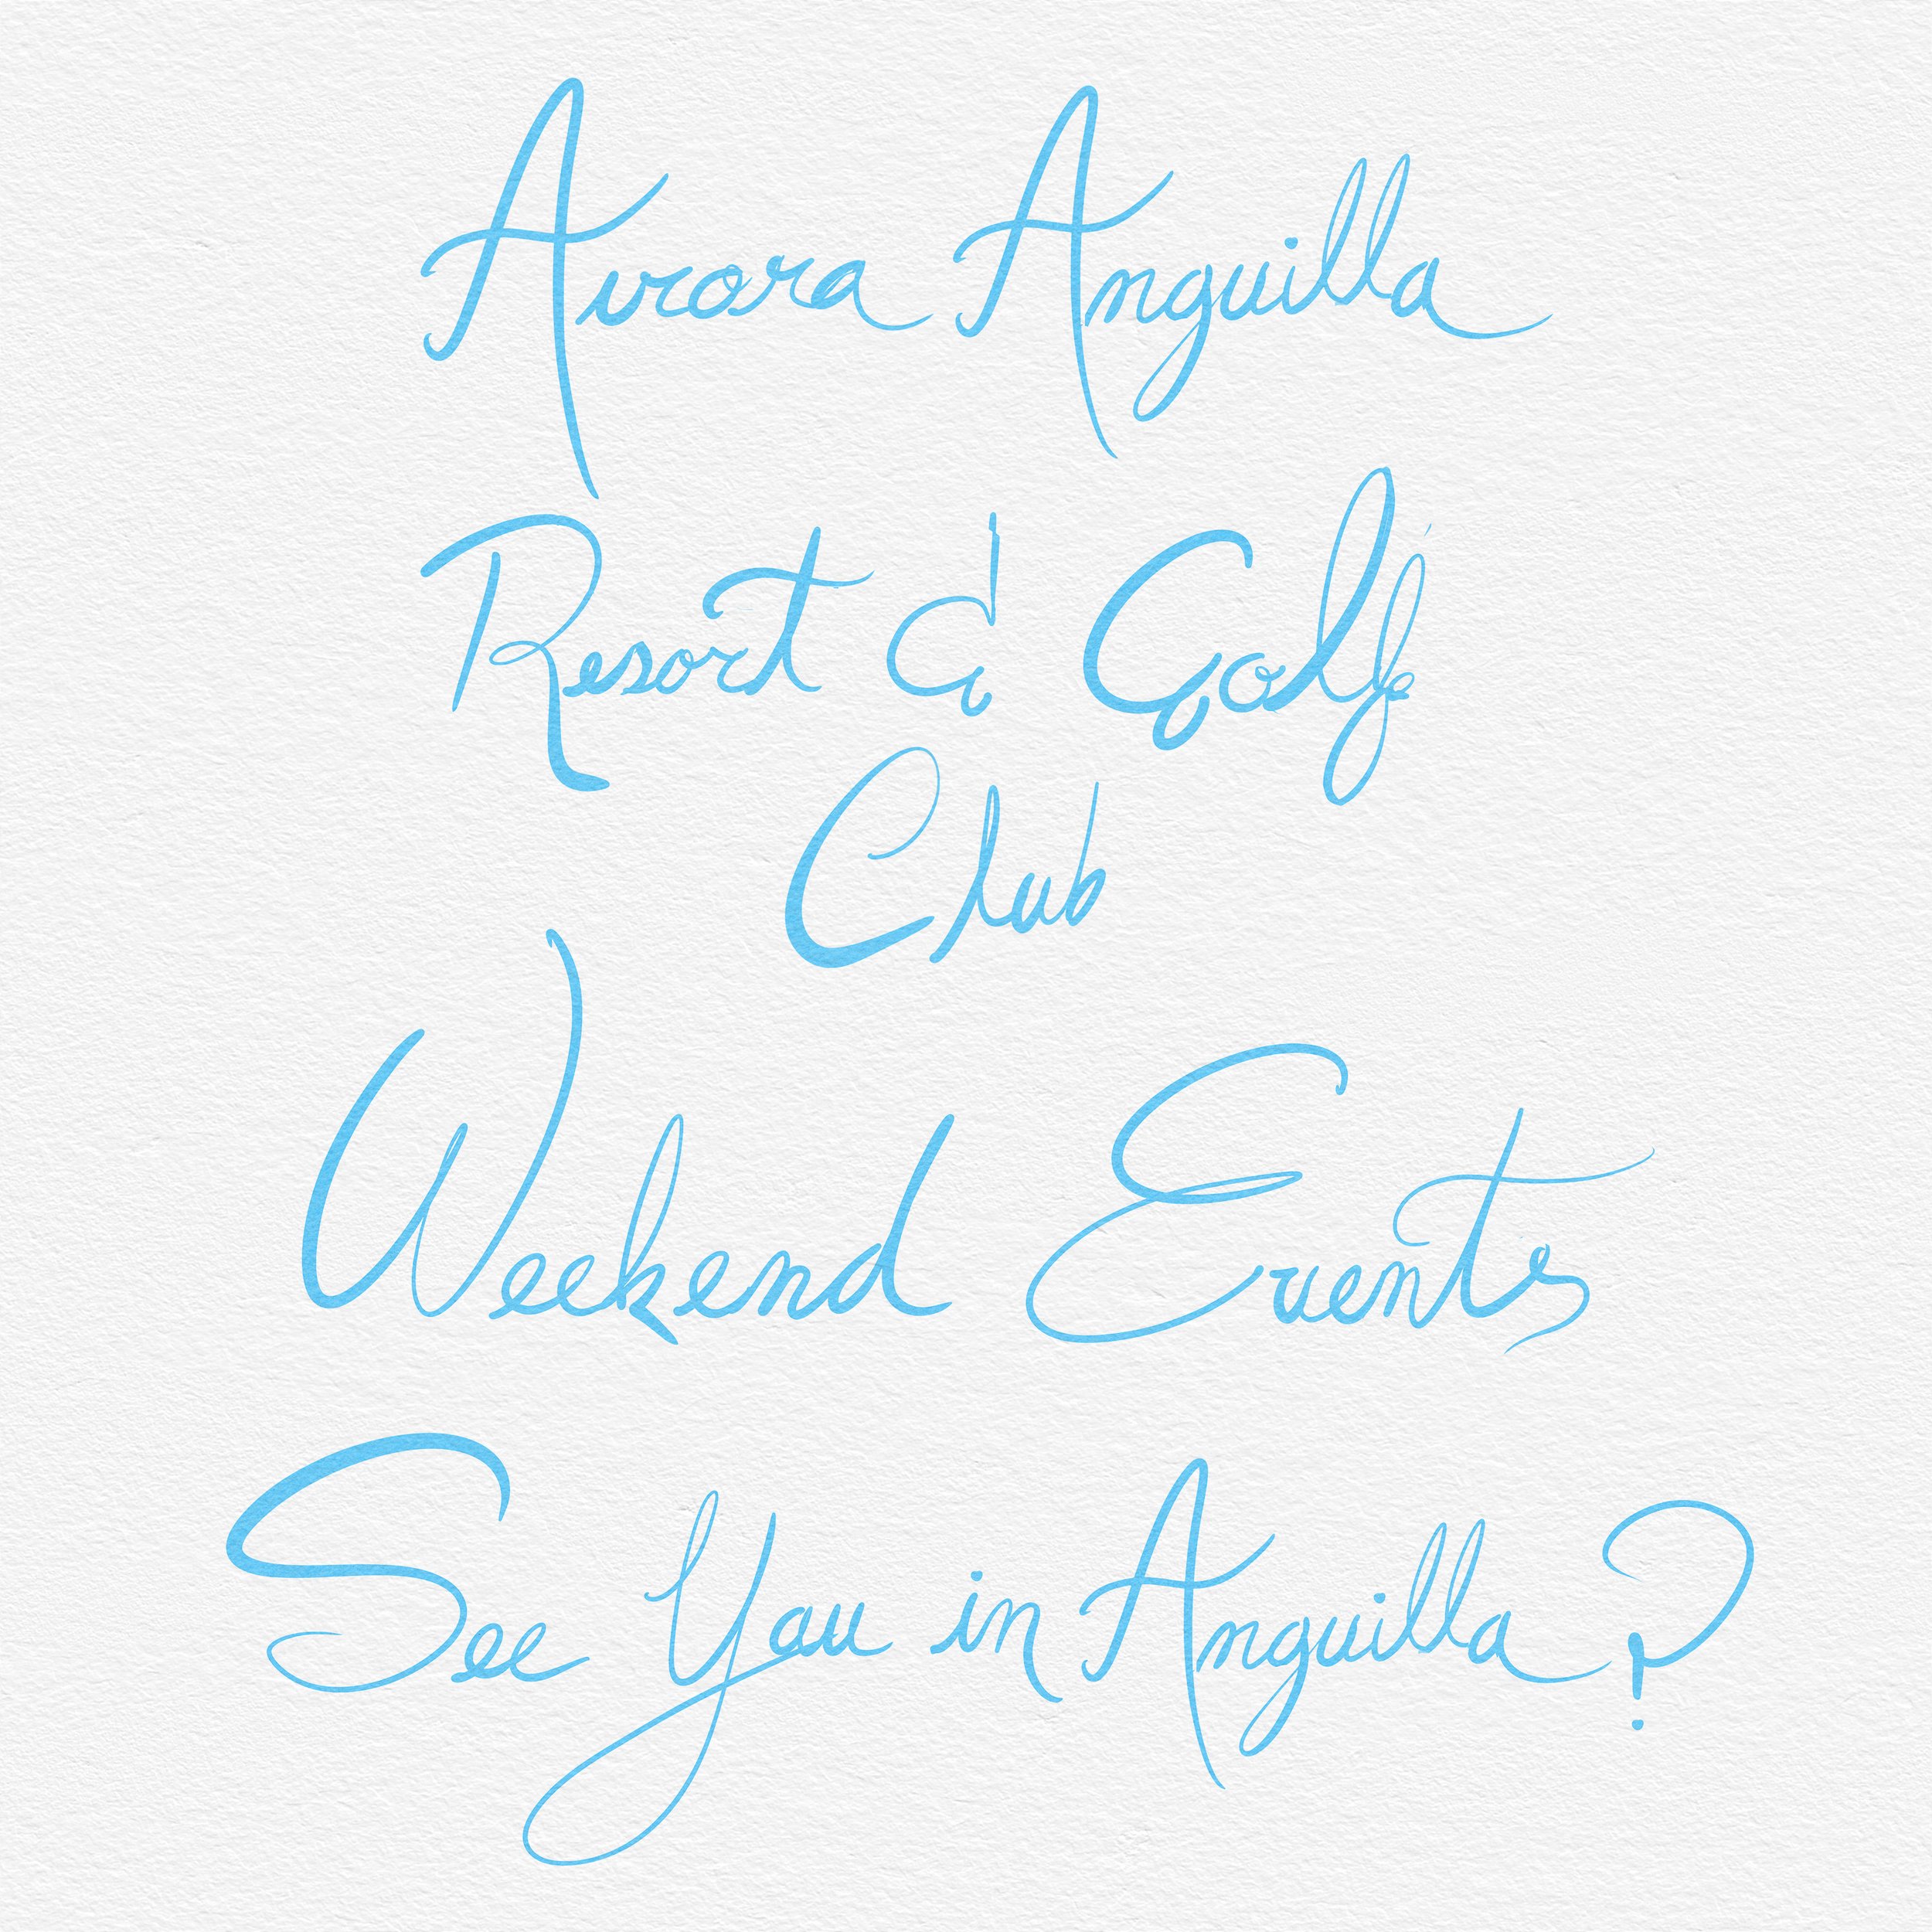 Aurora Anguilla
Resort & Golf
Club
Weekend Events
See You in Anguilla?